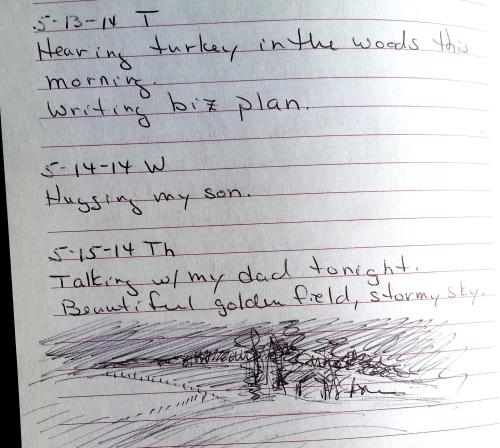 5-13-14 T
Hearing turkey in the woods this
morning.
Writing biz plan.
5-14-14 W
Hugging my son.
5-15-14 Th
Talking w/ my dad tonight.
Beautiful golden field, stormy sky.